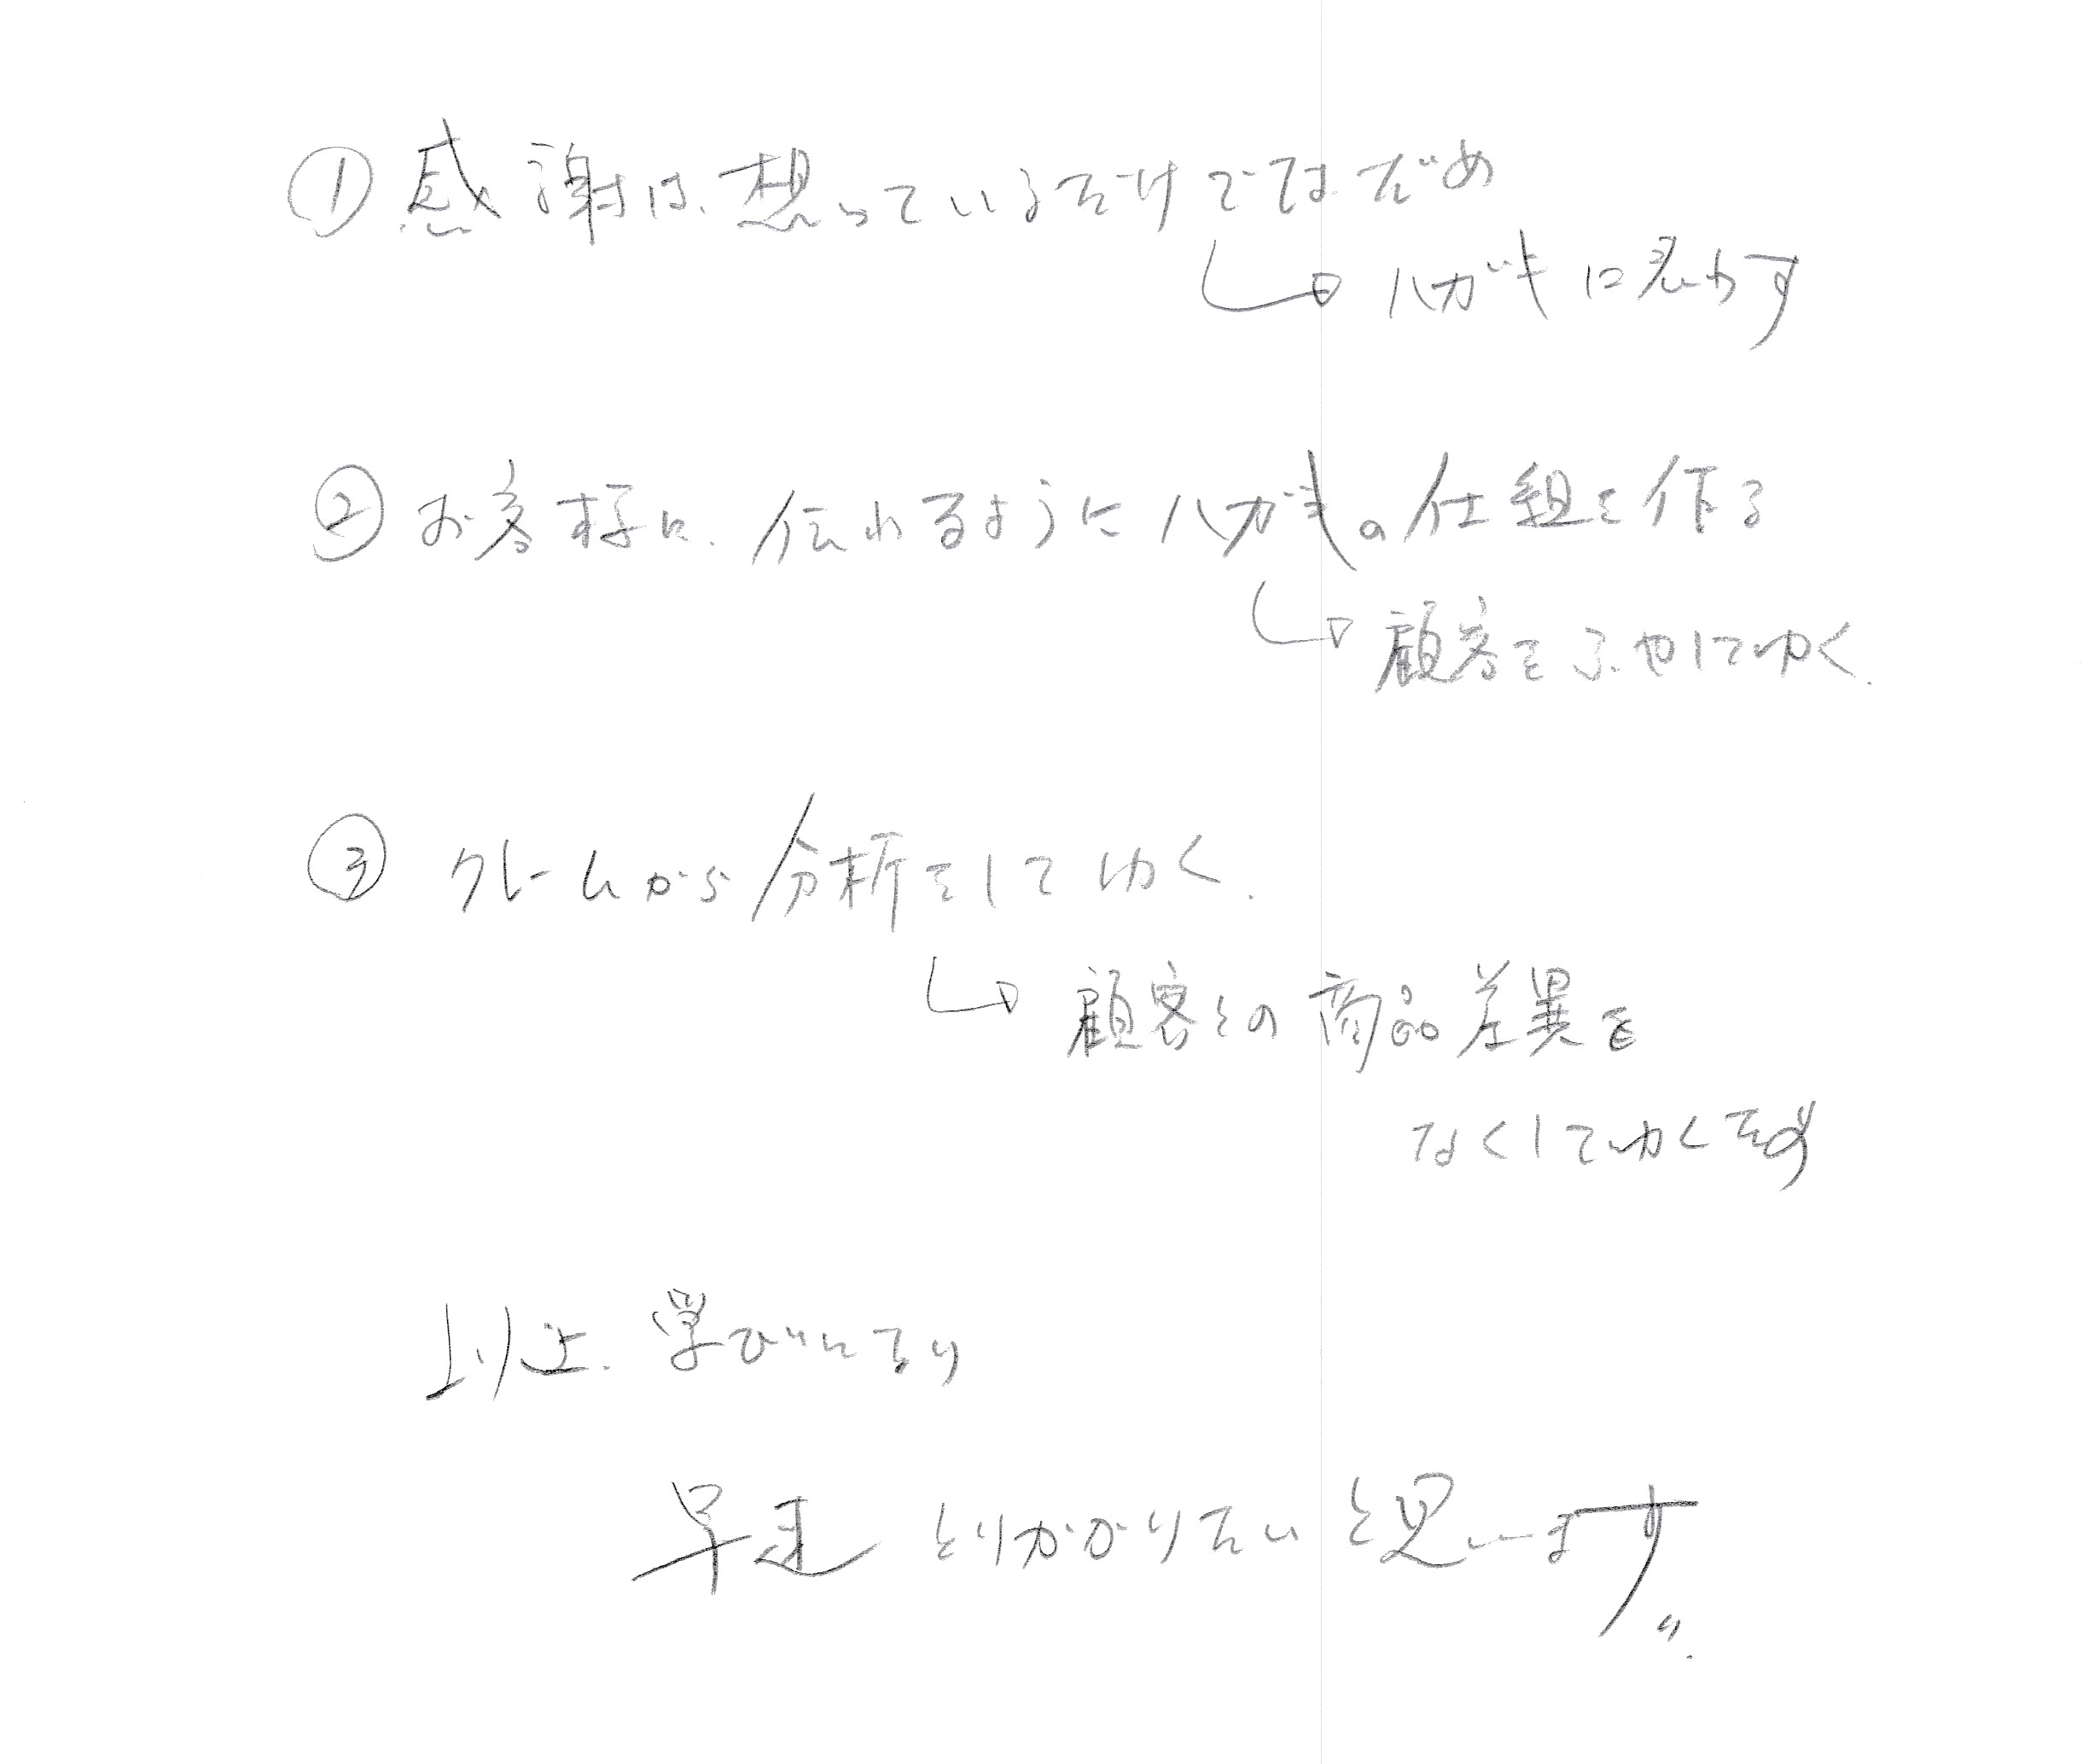 ①感謝は、想っているだけではだめ
→ハガキに表わす
②お客様に、伝わるようにハガキの仕組を作る
→顧客をふやしてゆく.
③クレームから分析をしてゆく.
→顧客との商品差異を
なくしてゆく
以上、学びになり
早速とりかかりたいと思います〃.